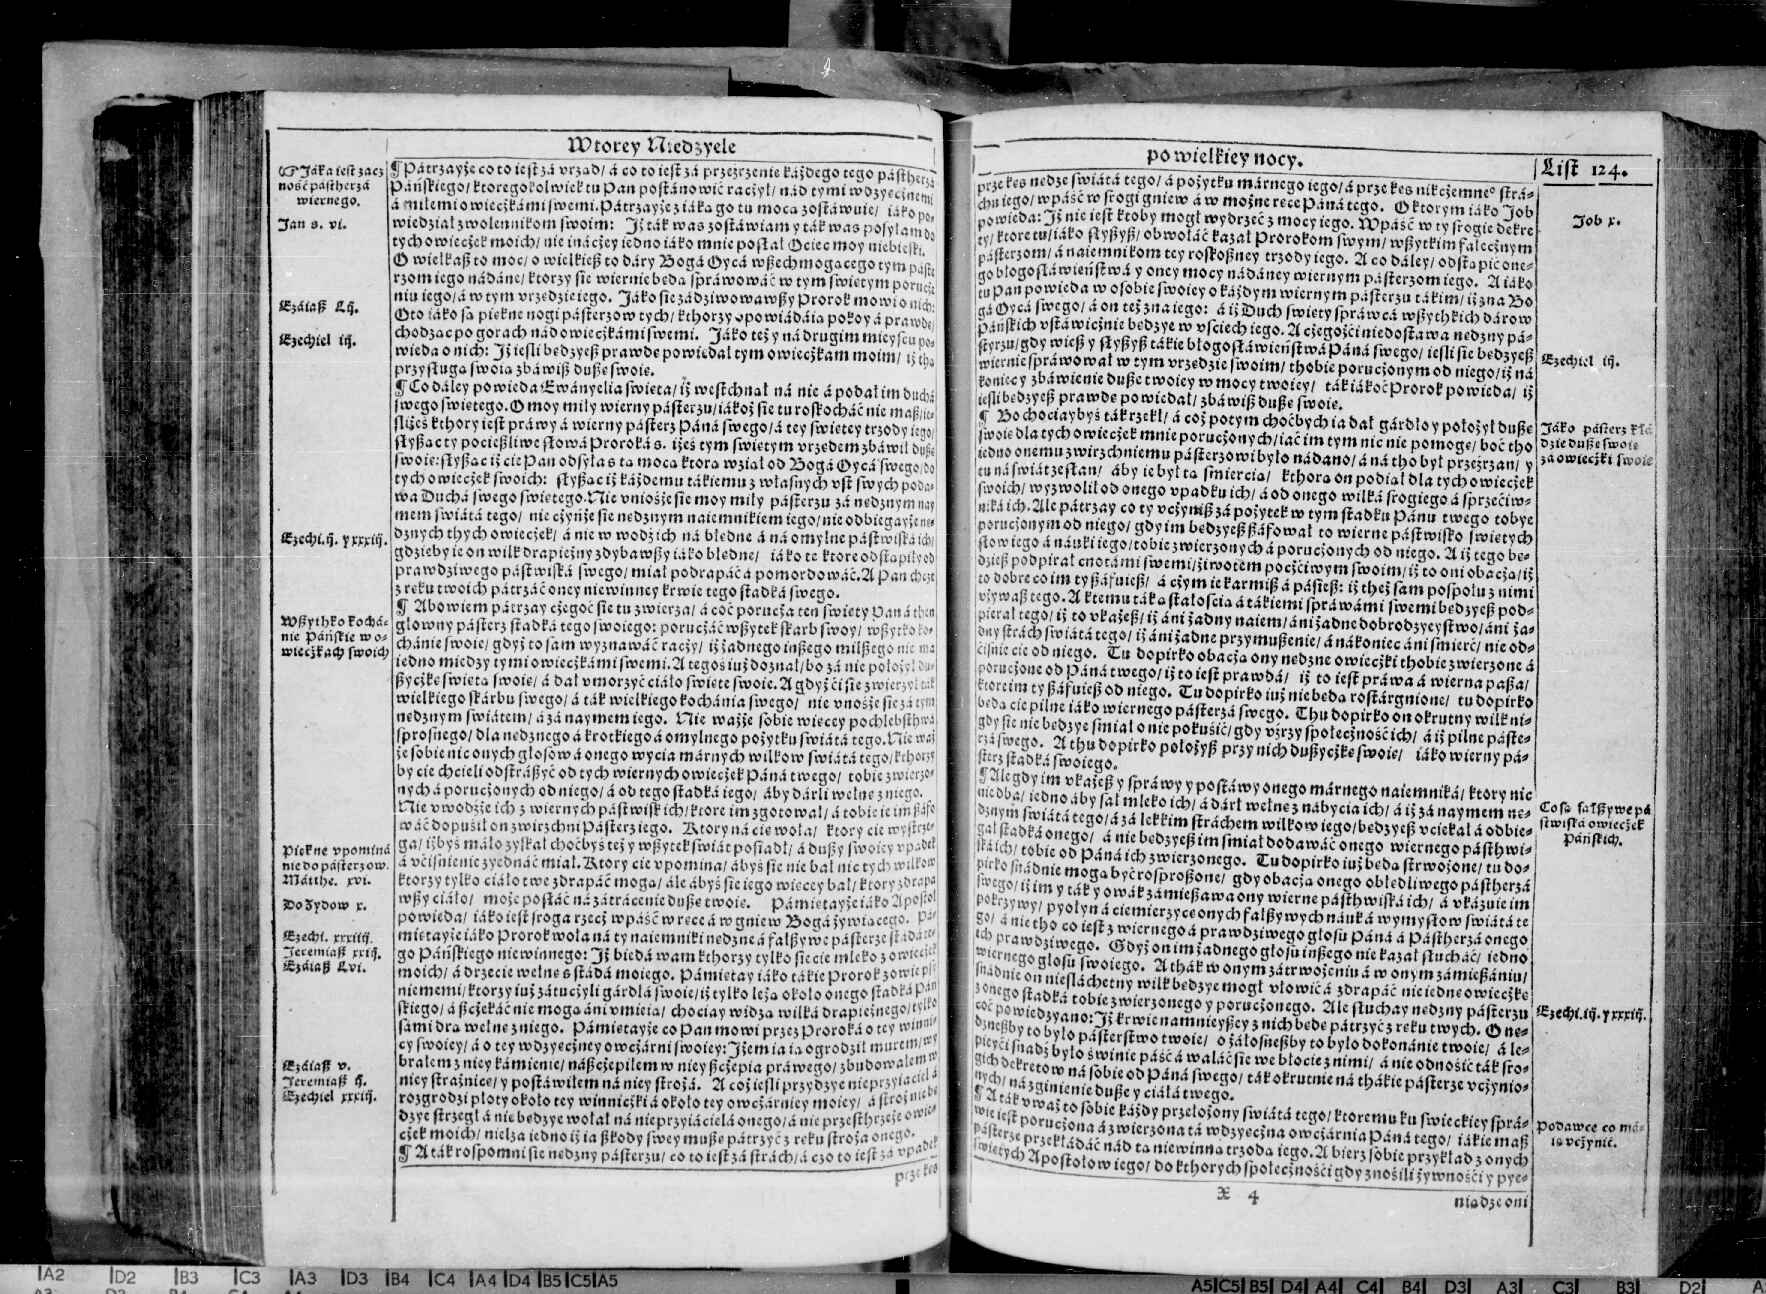 Wtorey Niedzyele
☞ Jáka iest zacz
ność pástherzá
wiernego.
Jan s. vi.
Ezáiaß Lij.
Ezechiel iij.
Ezechi. ij. y xxxiij.
Wßythko kochá-
nie Páńskie w o-
wieczkách swoich
Piękne vpomina
nie do pásterzow.
Mátthe. xvi.
Do Zydow x.
Ezechi. xxxiiij.
Jeremiaß xxiij.
Ezáiaß Lvi.
Ezáiaß v.
Jeremiaß ij.
Ezechiel xxxiij.
¶ Pátrzayże co to iest zá vrzad/ á co to iest zá przeyrzenie káżdego tego pástherzá
Páńskiego/ ktoregokolwiek tu Pan postánowić raczył/ nád tymi wdzyecznemi
á miłemi owieczkámi swemi. Pátrzayże z iáka go tu moca zostáwuie/ iáko po-
wiedział zwolennikom swoim: Jż ták was zostáwiam y ták was posyłam do
tych owieczek moich/ nie ináczey iedno iáko mnie posłał Ociec moy niebieski.
O wielkaß to moc/ o wielkież to dáry Bogá Oycá wßechmogacego tym páste
rzom iego nádáne/ ktorzy sie wiernie beda spráwowáć w tym swietym porucze
niu iego/ á w tym vrzedzie iego. Jáko sie zádziwowawßy Prorok mowi o nich:
Oto iáko sa piekne nogi pásterzow tych/ kthorzy opowiádáia pokoy á prawde/
chodzac po gorach nád owieczkámi swemi. Jáko też y ná drugim mieyscu po-
wieda o nich: Jż iesli bedzyeß prawde powiedał tym owieczkam moim/ iż tha
przysługa swoia zbáwiß duße swoie.
¶ Co dáley powieda Ewányelia swieta/ iż westchnał ná nie á podał im duchá
swego swietego. O moy miły wierny pásterzu/ iákoż sie tu roskocháć nie maß/ ie-
sliżeś kthory iest práwy á wierny pásterz Páná swego/ á tey swietey trzody iego/
słyßac ty pocießliwe słowá Proroká s. iżeś tym swietym vrzedem zbáwił duße
swoie: słyßac iż cie Pan odsyła s ta moca ktora wział od Bogá Oycá swego/ do
tych owieczek swoich: słyßac iż káżdemu tákiemu z własnych vst swych podá-
wa Duchá swego swietego. Nie vnośże sie moy miły pásterzu zá nedznym nay
mem swiátá tego/ nie czyńże sie nedznym naiemnikiem iego/ nie odbiegayże ne-
dznych thych owieczek/ á nie w wodź ich ná błedne á ná omylne pástwiská ich/
gdzieby ie on wilk drapieżny zdybawßy iáko błedne/ iáko te ktore odstapiły od
prawdziwego pástwiská swego/ miał podrapáć á pomordowáć. A Pan chcze
z reku twoich pátrzáć oney niewinney krwie tego stadká swego.
¶ Abowiem pátrzay czegoć sie tu zwierza/ á coć porucza ten swiety Pan á then
głowny pásterz stadká tego swoiego: poruczáć wßytek skarb swoy/ wßytko ko-
chánie swoie/ gdyż to sam wyznawáć raczy/ iż żadnego inßego milßego nie ma
iedno miedzy tymi owieczkámi swemi. A tegoś iuż doznał/ bo zá nie położył du-
ßyczke swieta swoie/ á dał vmorzyć ciáło swiete swoie. A gdyż ci sie zwierzył ták
wielkiego skárbu swego/ á ták wielkiego kochánia swego/ nie vnośże sie zá tym
nedznym swiátem/ á zá naymem iego. Nie ważże sobie wiecey pochlebsthwá
sprosnego/ dla nedznego á krotkiego á omylnego pożytku swiátá tego. Nie waż
że sobie nic onych głosow á onego wycia márnych wilkow swiátá tego/ kthorzy
by cie chcieli odstráßyć od tych wiernych owieczek Páná twego/ tobie zwierzo-
nych á poruczonych od niego/ á od tego stadká iego/ áby dárli wełne z niego.
Nie vwodźże ich z wiernych pástwisk ich/ ktore im zgotował/ á tobie ie im ßáfo
wáć dopuścił on zwirzchni Pásterz iego. Ktory ná cie woła/ ktory cie wystrze-
ga/ iżbyś máło zyskał choćbyś też y wßytek swiát posiadł/ á dußy swoiey vpadek
á vciśnienie zyednáć miał. Ktory cie vpomina/ ábyś sie nie bał nic tych wilkow
ktorzy tylko ciáło twe zdrapáć moga/ ále ábyś sie iego wiecey bał/ ktory zdrapa
wßy ciáło/ może posłáć ná zátrácenie duße twoie. Pámietayże iáko Apostoł
powieda/ iáko iest sroga rzecz wpáść w rece á w gniew Bogá żywiacego. Pá-
mietayże iáko Prorok woła ná ty naiemniki nedzne á falßywe pásterze stádá te-
go Páńskiego niewinnego: Jż biedá wam kthorzy tylko sie cie mleko z owieczek
moich/ á drzecie wełne s stádá moiego. Pámietay iáko tákie Prorok zowie psy
niememi/ ktorzy iuż zátuczyli gárdłá swoie/ iż tylko leża około onego stadká Pán
skiego/ á ßczekáć nie moga áni vmieia/ chociay widza wilká drapieżnego/ tylko
sámi dra wełne z niego. Pámietayże co Pan mowi przez Proroká o tey winni-
cy swoiey/ á o tey wdzyeczney owczárni swoiey: Jżem ia ia ogrodził murem/ wy
brałem z niey kámienie/ náßczepiłem w niey ßczepia práwego/ zbudowałem w
niey strażnice/ y postáwiłem ná niey strożá. A coż iesli przydzye nieprzyiaciel á
rozgrodzi płoty około tey winniczki á około tey owczárniey moiey/ á stroż nie be
dzye strzegł á nie bedzye wołał ná nieprzyiacielá onego/ á nie przesthrzeże owie-
czek moich/ nielza iedno iż ia ßkody swey muße pátrzyć z reku strożá onego.
¶ A ták rospomni sie nedzny pásterzu/ co to iest zá strách/ á czo to iest zá vpadek
prze kes
po wielkiey nocy.
List 124.
prze kes nedze swiátá tego/ á pożytku márnego iego/ á prze kes nikczemneᵒ strá-
chu iego/ wpáść w srogi gniew á w możne rece Páná tego. O ktorym iáko Job
powieda: Jż nie iest ktoby mogł wydrzeć z mocy iego. Wpáść w ty srogie dekre
ty/ ktore tu/ iáko słyßyß/ obwołáć kazał Prorokom swym/ wßytkim falecznym
pásterzom/ á naiemnikom tey roskoßney trzody iego. A co dáley/ odstapić one-
go błogosłáwieństwá y oney mocy nádáney wiernym pásterzom iego. A iáko
tu Pan powieda w osobie swoiey o káżdym wiernym pásterzu tákim/ iż zna Bo
gá Oycá swego/ á on też zna iego: á iż Duch swiety spráwcá wßythkich dárow
Páńskich vstáwicznie bedzye w vściech iego. A czegożci niedostawa nedzny pá-
styrzu/ gdy wieß y słyßyß tákie błogosłáwieństwá Páná swego/ iesli sie bedzyeß
wiernie spráwował w tym vrzedzie swoim/ thobie poruczonym od niego/ iż ná
koniec y zbáwienie duße twoiey w mocy twoiey/ ták iákoć Prorok powieda/ iż
iesli bedzyeß prawde powiedał/ zbáwiß duße swoie.
¶ Bo chociaybyś ták rzekł/ á coż potym choćbych ia dał gárdło y położył duße
swoie dla tych owieczek mnie poruczonych/ iać im tym nic nie pomoge/ boć tho
iedno onemu zwirzchniemu pásterzowi było nádano/ á ná tho był przeyrzan/ y
tu ná swiát zesłan/ áby ie był ta śmiercia/ kthora on podiał dla tych owieczek
swoich/ wyzwolił od onego vpadku ich/ á od onego wilká srogiego á sprzećiw-
niká ich. Ale pátrzay co ty vczyniß zá pożytek w tym stadku Pánu twego tobye
poruczonym od niego/ gdy im bedzyeß ßáfował to wierne pástwisko swietych
słow iego á náuki iego/ tobie zwierzonych á poruczonych od niego. A iż tego be-
dzieß podpirał cnotámi swemi/ żywotem poczciwym swoim/ iż to oni obacża/ iż
to dobre co im ty ßáfuieß/ á czym ie karmiß á pásieß: iż theż sam pospołu z nimi
vżywaß tego. A ktemu táka stáłościa á tákiemi spráwámi swemi bedzyeß pod-
pierał tego/ iż to vkażeß/ iż áni żadny naiem/ áni żadne dobrodzyeystwo/ áni ża-
dny strách swiátá tego/ iż áni żadne przymußenie/ á nákoniec áni śmierć/ nie od-
ćiśnie cie od niego. Tu dopirko obacża ony nedzne owieczki thobie zwierzone á
poruczone od Páná twego/ iż to iest prawdá/ iż to iest práwa á wierna paßa/
ktora im ty ßáfuieß od niego. Tu dopirko iuż nie beda rostárgnione/ tu dopirko
beda cie pilne iáko wiernego pásterzá swego. Thu dopirko on okrutny wilk ni-
gdy sie nie bedzye śmiał o nie pokuśić/ gdy vzrzy społeczność ich/ á iż pilne páste-
rzá swego. A thu dopirko położyß przy nich dußyczke swoie/ iáko wierny pá-
sterz stadká swoiego.
¶ Ale gdy im vkażeß y spráwy y postáwy onego márnego naiemniká/ ktory nic
nie dba/ iedno áby sał mleko ich/ á dárł wełne z nabycia ich/ á iż zá naymem ne-
dznym swiátá tego/ á zá lekkim stráchem wilkow iego/ bedzyeß vciekał á odbie-
gał stadká onego/ á nie bedzyeß im śmiał dodawáć onego wiernego pásthwi-
ská ich/ tobie od Páná ich zwierzonego. Tu dopirko iuż beda strwożone/ tu do-
pirko snádnie moga być rosproßone/ gdy obacża onego obłedliwego pástherzá
swego/ iż im y ták y owák zámießawa ony wierne pásthwiská ich/ á vkázuie im
pokrzywy/ pyołyn á ciemierzyce onych falßywych náuk á wymysłow swiátá te
go/ á nie tho co iest z wiernego á prawdziwego głosu Páná á Pástherzá onego
ich prawdziwego. Gdyż on im żadnego głosu inßego nie kazał słucháć/ iedno
wiernego głosu swoiego. A thák w onym zátrwożeniu á w onym zámießániu/
snádnie on nieslachetny wilk bedzye mogł vłowić á zdrapáć nie iedne owieczke
z onego stadká tobie zwierzonego y poruczonego. Ale słuchay nedzny pásterzu
coć powiedzyano: Jż krwie namnieyßey z nich bede pátrzyć z reku twych. O ne-
dzneßby to było pásterstwo twoie/ o żáłosneßby to było dokonánie twoie/ á le-
pieyći snadź było świnie páść á waláć sie we błocie z nimi/ á nie odnośić ták sro-
gich dekretow ná sobie od Páná swego/ ták okrutnie ná thákie pásterze vczynio-
nych/ ná zginienie duße y ciáłá twego.
¶ A ták vważ to sobie káżdy przełożony swiátá tego/ ktoremu ku swieckiey sprá-
wie iest poruczona á zwierzona tá wdzyeczna owczárnia Páná tego/ iákie maß
pásterze przekłádáć nád ta niewinna trzoda iego. A bierz sobie przykład z onych
swietych Apostołow iego/ do kthorych społecznośći gdy znośili żywnośći y pye-
Job x.
Ezechiel iij.
Jáko pásterz kłá
dzie duße swoie
zá owieczki swoie
Co sa falßywe pá
stwiská owieczek
Páńskich.
Ezechi. iij. y xxxiij.
Podawce co má-
ia vczynić.
æ 4
niadze oni
A2 D2 B3 C3 A3 D3 B4 C4 A4 D4 B5 C5 A5
A5 C5 B5 D4 A4 C4 B4 D3 A3 C3 B3 D2